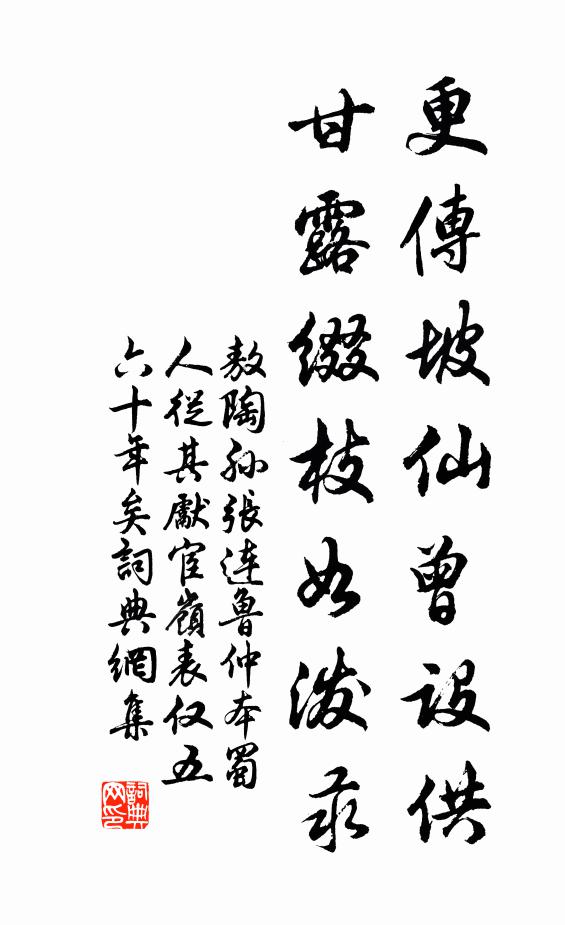 更傳坡仙曾設供
甘露綴枝如潑
敖陶孫張連魯仲本蜀
人從其獻宦嶺表仅五
六十年矣詞典網集
詞典
网印